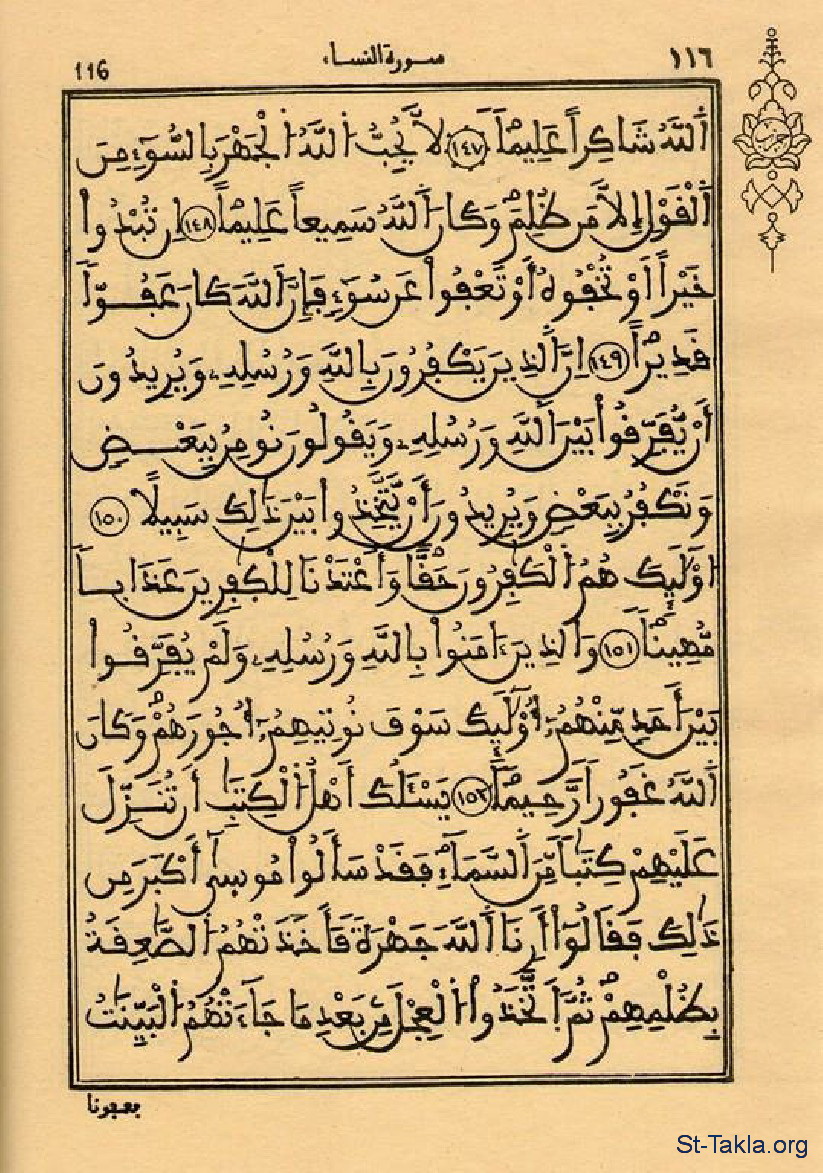 116 سورة النساء ١١٦
اَ۬للَّهُ شَاكِراً عَلِيماًۖ ١٤٧ لَّا يُحِبُّ اُ۬للَّهُ اُ۬لْجَهْرَ بِالسُّوٓءِ مِنَ
اَ۬لْقَوْلِ إِلَّا مَن ظُلِمَۖ وَكَانَ اَ۬للَّهُ سَمِيعاً عَلِيماًۖ ١٤٨ اِن تُبْدُواْ
خَيْراً اَوْ تُخْفُوهُ أَوْ تَعْفُواْ عَن سُوٓءٖ فَإِنَّ اَ۬للَّهَ كَانَ عَفُوّاٗ
قَدِيراًۖ ١٤٩ اِنَّ اَ۬لذِينَ يَكْفُرُونَ بِاللَّهِ وَرُسُلِهِۦ وَيُرِيدُونَ
أَنْ يُّفَرِّقُواْ بَيْنَ اَ۬للَّهِ وَرُسُلِهِۦ وَيَقُولُونَ نُومِنُ بِبَعْضٖ
وَنَكْفُرُ بِبَعْضٖ وَيُرِيدُونَ أَنْ يَّتَّخِذُواْ بَيْنَ ذَٰلِكَ سَبِيلًا ١٥٠
اوْلَٰٓئِكَ هُمُ اُ۬لْكَٰفِرُونَ حَقّاٗۖ وَأَعْتَدْنَا لِلْكَٰفِرِينَ عَذَاباٗ
مُّهِيناٗۖ ١٥١ وَالذِينَ ءَامَنُواْ بِاللَّهِ وَرُسُلِهِۦ وَلَمْ يُفَرِّقُواْ
بَيْنَ أَحَدٖ مِّنْهُمُۥٓ أُوْلَٰٓئِكَ سَوْفَ نُوتِيهِمُۥٓ أُجُورَهُمْۖ وَكَانَ
اَ۬للَّهُ غَفُوراٗ رَّحِيماٗۖ ١٥٢ يَسْـَٔلُكَ أَهْلُ اُ۬لْكِتَٰبِ أَن تُنَزِّلَ
عَلَيْهِمْ كِتَٰباٗ مِّنَ اَ۬لسَّمَآءِۖ فَقَدْ سَأَلُواْ مُوسَىٰٓ أَكْبَرَ مِن
ذَٰلِكَ فَقَالُوٓاْ أَرِنَا اَ۬للَّهَ جَهْرَةٗ فَأَخَذَتْهُمُ اُ۬لصَّٰعِقَةُ
بِظُلْمِهِمْۖ ثُمَّ اَ۪تَّخَذُواْ اُ۬لْعِجْلَ مِنۢ بَعْدِ مَا جَآءَتْهُمُ اُ۬لْبَيِّنَٰتُ
فعفونا
St-Takla.org